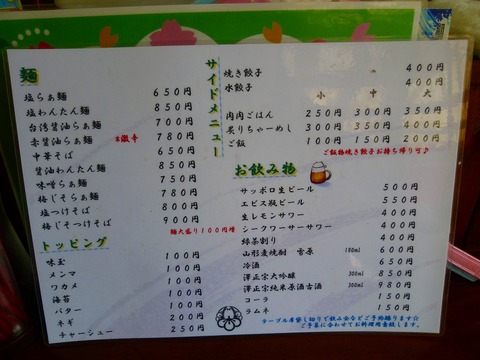 麺
塩らぁ麺 650円
塩わんたん麺 850円
台湾醤油らぁ麺 700円
赤醤油らぁ麺 ※激辛 780円
中華そば 650円
醤油わんたん麺 850円
味噌らぁ麺 750円
梅じそらぁ麺 780円
塩つけそば 800円
梅じそつけそば 900円
麺大盛り100円増
トッピング
味玉 100円
メンマ 100円
ワカメ 100円
海苔 100円
バター 100円
ネギ 200円
チャーシュー 250円
サイドメニュー
焼き餃子 400円
水餃子 400円
小 中 大
肉肉ごはん 250円 300円 350円
炙りちゃーめし 300円 350円 400円
ご飯 100円 150円 200円
ご飯物焼き餃子お持ち帰り可♪
お飲み物
サッポロ生ビール 500円
エビス瓶ビール 550円
生レモンサワー 400円
シークワーサーサワー 400円
緑茶割り 400円
山形麦焼酎 萱原 180ml 600円
冷酒 650円
澤正宗大吟醸 300ml 850円
澤正宗純米原酒古酒 300ml 980円
コーラ 150円
ラムネ 150円
テーブル席貸し切りで飲み会などご予約賜ります☆
ご予算に合わせてお料理用意致します。